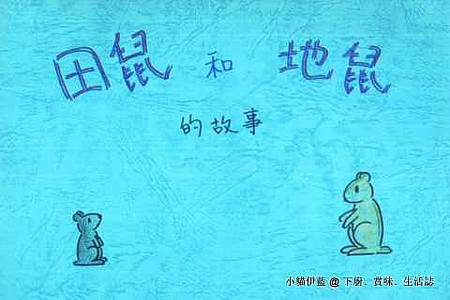 田鼠 和 地鼠
的故事
小貓伊藍 @ 下廚、賞味、生活誌